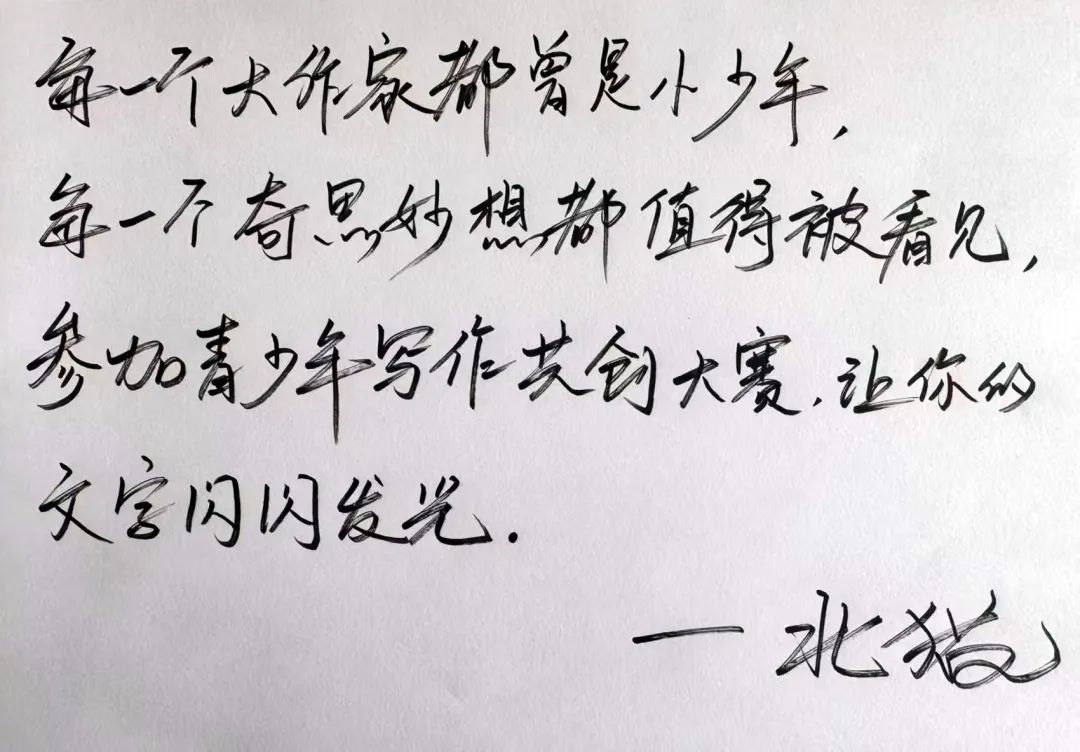 每一个大作家都曾是小少年,
每一个奇思妙想都值得被看见,
参加青少年写作共创大赛.让你的
文字闪闪发光.
—北猫